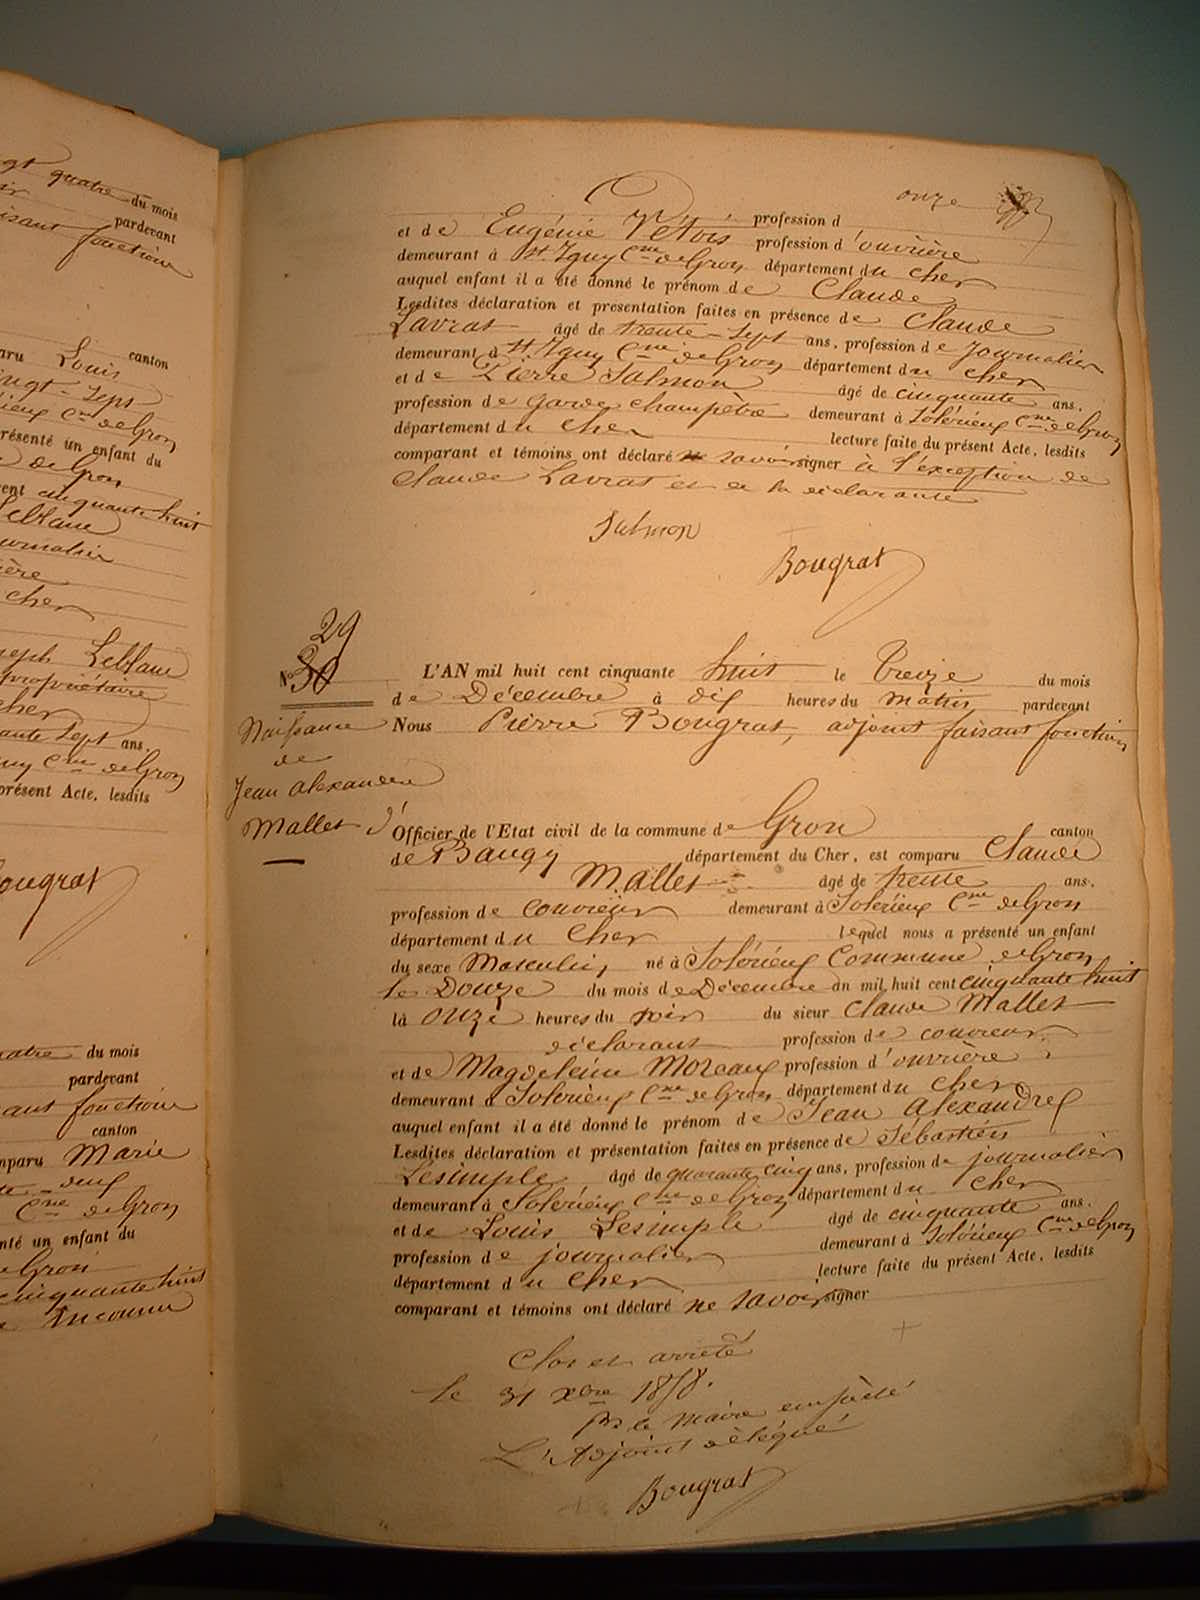 gt quatre du mois
pardevant
isant fonction
aru Louis canton
ingt-sept
rieux Cne de Gron
résenté un enfant du
de Gron
ent cinquante huit
Leblanc
urnalier
ière
cher
seph Leblanc
propriétaire
cher
ante sept ans,
uy Cne de Gron
présent Acte, lesdits
ougrat
uatre du mois
pardevant
ant fonction
canton
mparu Marie
te-neuf
Cne de Gron
nté un enfant du
Gron
cinquante huit
Inconnu
onze
profession d
et de Eugénie Vétois profession d'ouvrière
demeurant à St. Iguy Cne de Gron département du cher
auquel enfant il a été donné le prénom de Claude
Lesdites déclaration et presentation faites en présence de Claude
Lavrat âgé de trente-sept ans, profession de journalier
demeurant à St. Iguy Cne de Gron département du cher
et de Pierre Salmon âgé de cinquante ans.
profession de garde champêtre demeurant à Solérieux Cne de Gron
département du cher lecture faite du présent Acte, lesdits
comparant et témoins ont déclaré ne savoir signer à l'exception de
Claude Lavrat et de la déclarante
Salmon
Bougrat
29
No 30
Naissance
de
Jean Alexandre
Mallet
L'AN mil huit cent cinquante huit le treize du mois
de Décembre à dix heures du matin pardevant
Nous Pierre Bougrat, adjoint faisant fonction
d'Officier de l'Etat civil de la commune de Gron canton
de Baugy département du Cher, est comparu Claude
Mallet âgé de trente ans,
profession de couvreur demeurant à Solérieux Cne de Gron
département du Cher lequel nous a présenté un enfant
du sexe Masculin, né à Solérieux Commune de Gron
le Douze du mois de Décembre an mil huit cent cinquante huit
là onze heures du soir du sieur Claude Mallet
déclarant profession de couvreur
et de Magdeleine Moreau profession d'ouvrière
demeurant à Solérieux Cne de Gron département du cher
auquel enfant il a été donné le prénom de Jean Alexandre
Lesdites déclaration et présentation faites en présence de Sébastien
Lesimple âgé de quarante cinq ans, profession de journalier
demeurant à Solérieux Cne de Gron département du cher
et de Louis Lesimple âgé de cinquante ans.
profession de journalier demeurant à Solérieux Cne de Gron
département du cher lecture faite du présent Acte, lesdits
comparant et témoins ont déclaré ne savoir signer
Clos et arrêté
le 31 xbre 1858.
pr le maire empêché
L'Adjoint délégué
Bougrat